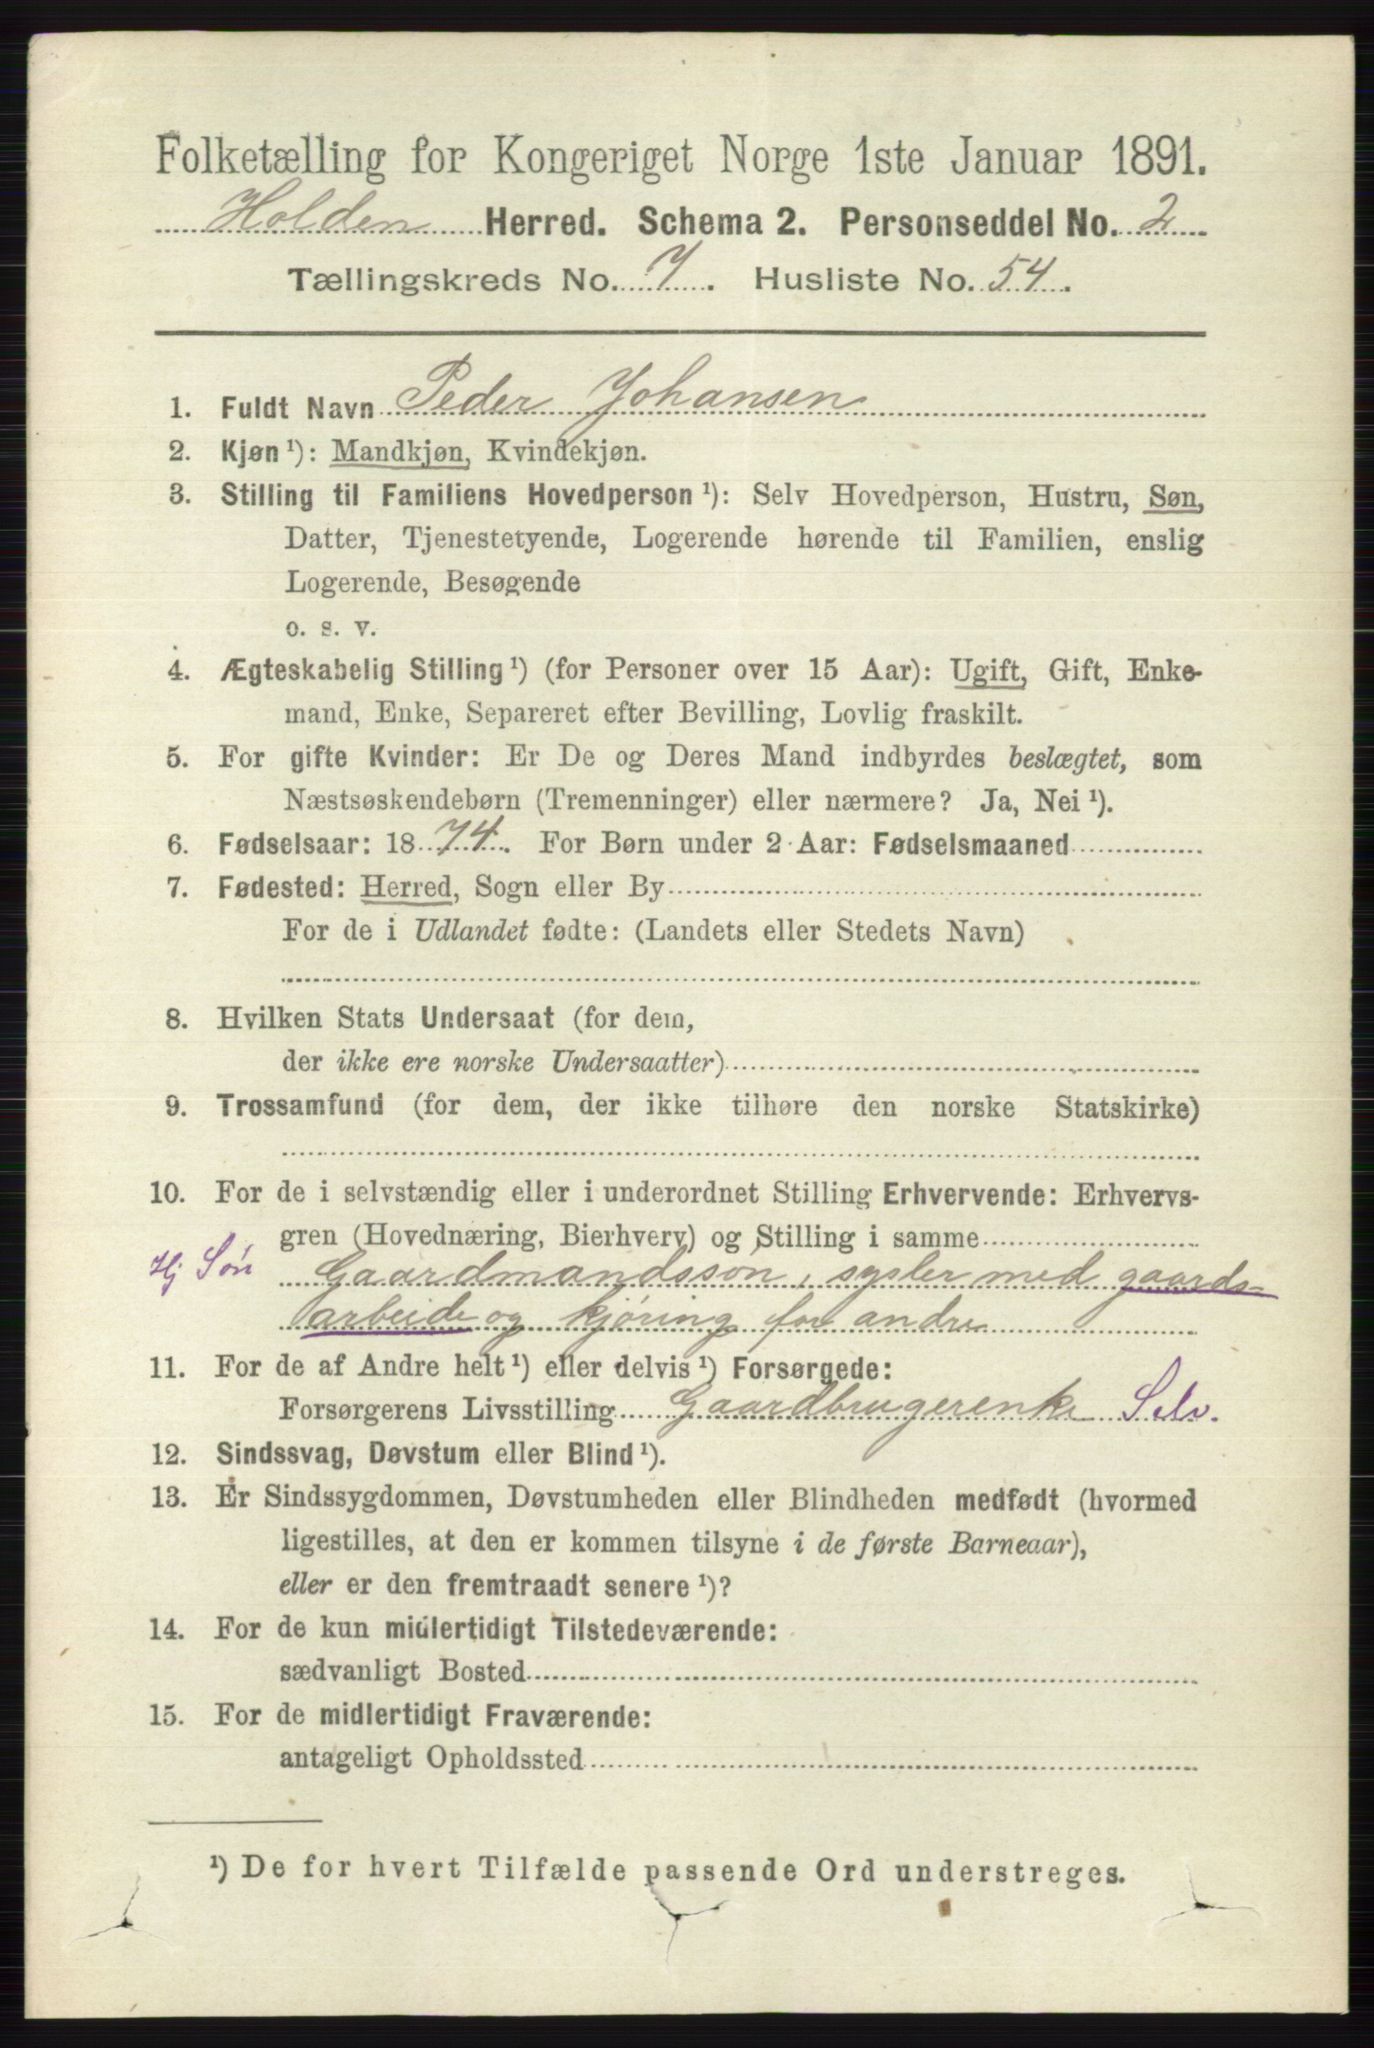 Folketælling for Kongeriget Norge 1ste Januar 1891.
Holden Herred. Schema 2. Personseddel No. 2
Tællingskreds No. 7. Husliste No. 54.
1. Fuldt Navn Peder Johansen
2. Kjøn ¹): Mandkjøn, Kvindekjøn.
3. Stilling til Familiens Hovedperson ¹): Selv Hovedperson, Hustru, Søn,
Datter, Tjenestetyende, Logerende hørende til Familien, enslig
Logerende, Besøgende
o. s. v.
4. Ægteskabelig Stilling ¹) (for Personer over 15 Aar): Ugift, Gift, Enke-
mand, Enke, Separeret efter Bevilling, Lovlig fraskilt.
5. For gifte Kvinder: Er De og Deres Mand indbyrdes beslægtet, som
Næstsøskendebørn (Tremenninger) eller nærmere? Ja, Nei ¹).
6. Fødselsaar: 1874. For Børn under 2 Aar: Fødselsmaaned
7. Fødested: Herred, Sogn eller By
For de i Udlandet fødte: (Landets eller Stedets Navn)
8. Hvilken Stats Undersaat (for dem,
der ikke ere norske Undersaatter)
9. Trossamfund (for dem, der ikke tilhøre den norske Statskirke)
10. For de i selvstændig eller i underordnet Stilling Erhvervende: Erhvervs-
gren (Hovednæring, Bierhverv) og Stilling i samme
Hj Søn Gaardmandssøn, sysler med gaards-
arbeide og kjøring for andre
11. For de af Andre helt ¹) eller delvis ¹) Forsørgede:
Forsørgerens Livsstilling Gaardbrugerenke Selv.
12. Sindssvag, Døvstum eller Blind ¹).
13. Er Sindssygdommen, Døvstumheden eller Blindheden medfødt (hvormed
ligestilles, at den er kommen tilsyne i de første Barneaar),
eller er den fremtraadt senere ¹)?
14. For de kun midlertidigt Tilstedeværende:
sædvanligt Bosted
15. For de midlertidigt Fraværende:
antageligt Opholdssted
¹) De for hvert Tilfælde passende Ord understreges.